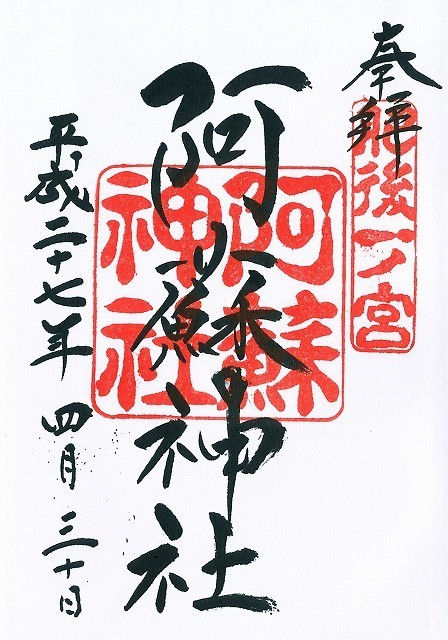 奉拝
肥後一ノ宮
阿蘇神社
阿蘇
神社
平成二十七年四月三十日